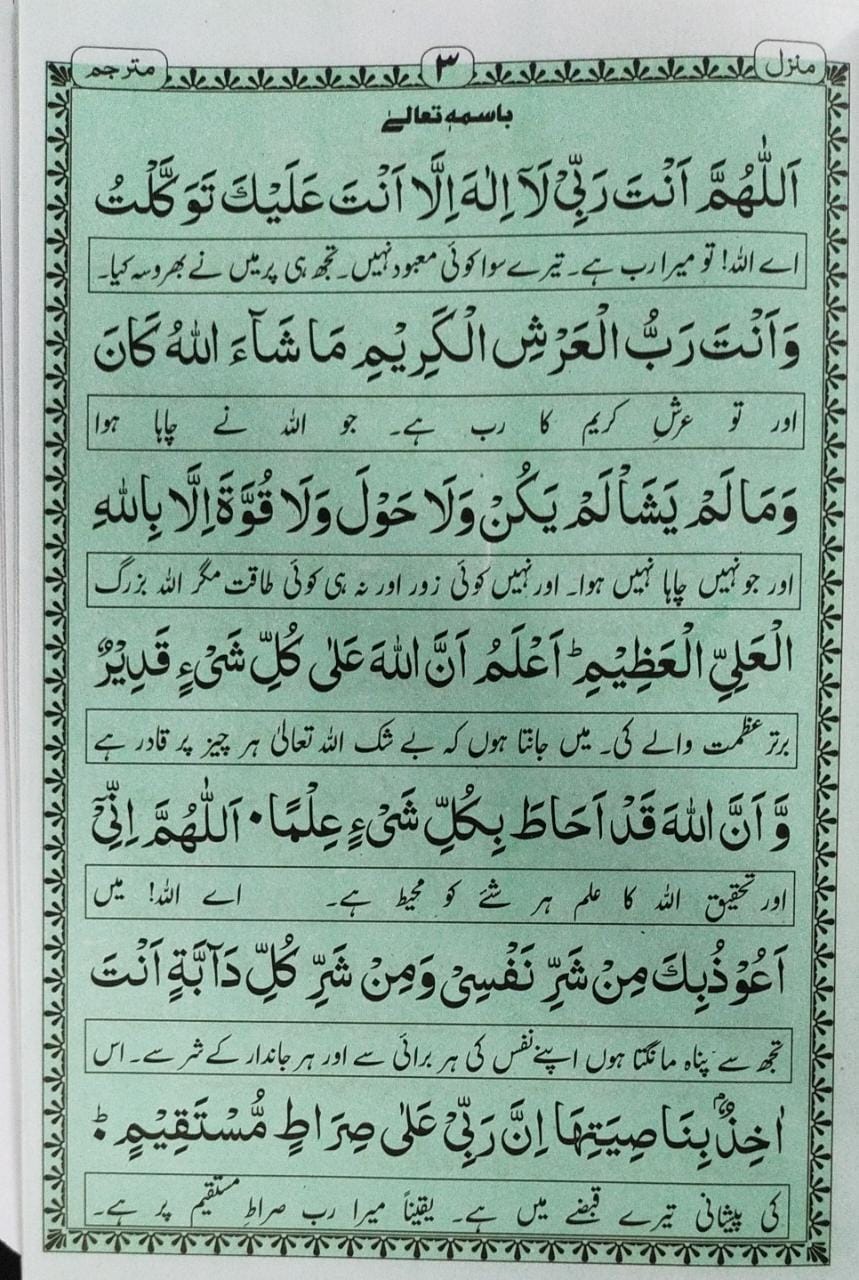 منزل ۳ مترجم
باسمہٖ تعالےٰ
اَللّٰهُمَّ اَنْتَ رَبِّيْ لَآ اِلٰهَ اِلَّا اَنْتَ عَلَيْكَ تَوَكَّلْتُ
اے اللہ! تو میرا رب ہے۔ تیرے سوا کوئی معبود نہیں۔ تجھ ہی پر میں نے بھروسہ کیا۔
وَاَنْتَ رَبُّ الْعَرْشِ الْكَرِيْمِ مَا شَآءَ اللهُ كَانَ
اور تو عرشِ کریم کا رب ہے۔ جو اللہ نے چاہا ہوا
وَمَا لَمْ يَشَاْ لَمْ يَكُنْ وَلَا حَوْلَ وَلَا قُوَّةَ اِلَّا بِاللهِ
اور جو نہیں چاہا نہیں ہوا۔ اور نہیں کوئی زور اور نہ ہی کوئی طاقت مگر اللہ بزرگ
الْعَلِيِّ الْعَظِيْمِ ؕ اَعْلَمُ اَنَّ اللهَ عَلٰى كُلِّ شَیْءٍ قَدِيْرٌ
برتر عظمت والے کی۔ میں جانتا ہوں کہ بے شک اللہ تعالیٰ ہر چیز پر قادر ہے
وَّ اَنَّ اللهَ قَدْ اَحَاطَ بِكُلِّ شَیْءٍ عِلْمًا ۰ اَللّٰهُمَّ اِنِّيْٓ
اور تحقیق اللہ کا علم ہر شئے کو محیط ہے۔ اے اللہ! میں
اَعُوْذُ بِكَ مِنْ شَرِّ نَفْسِیْ وَمِنْ شَرِّ كُلِّ دَآبَّةٍ اَنْتَ
تجھ سے پناہ مانگتا ہوں اپنے نفس کی ہر برائی سے اور ہر جاندار کے شر سے۔ اس
اٰخِذٌۢ بِنَاصِيَتِهَا اِنَّ رَبِّيْ عَلٰى صِرَاطٍ مُّسْتَقِيْمٍ ؕ
کی پیشانی تیرے قبضے میں ہے۔ یقیناً میرا رب صراطِ مستقیم پر ہے۔